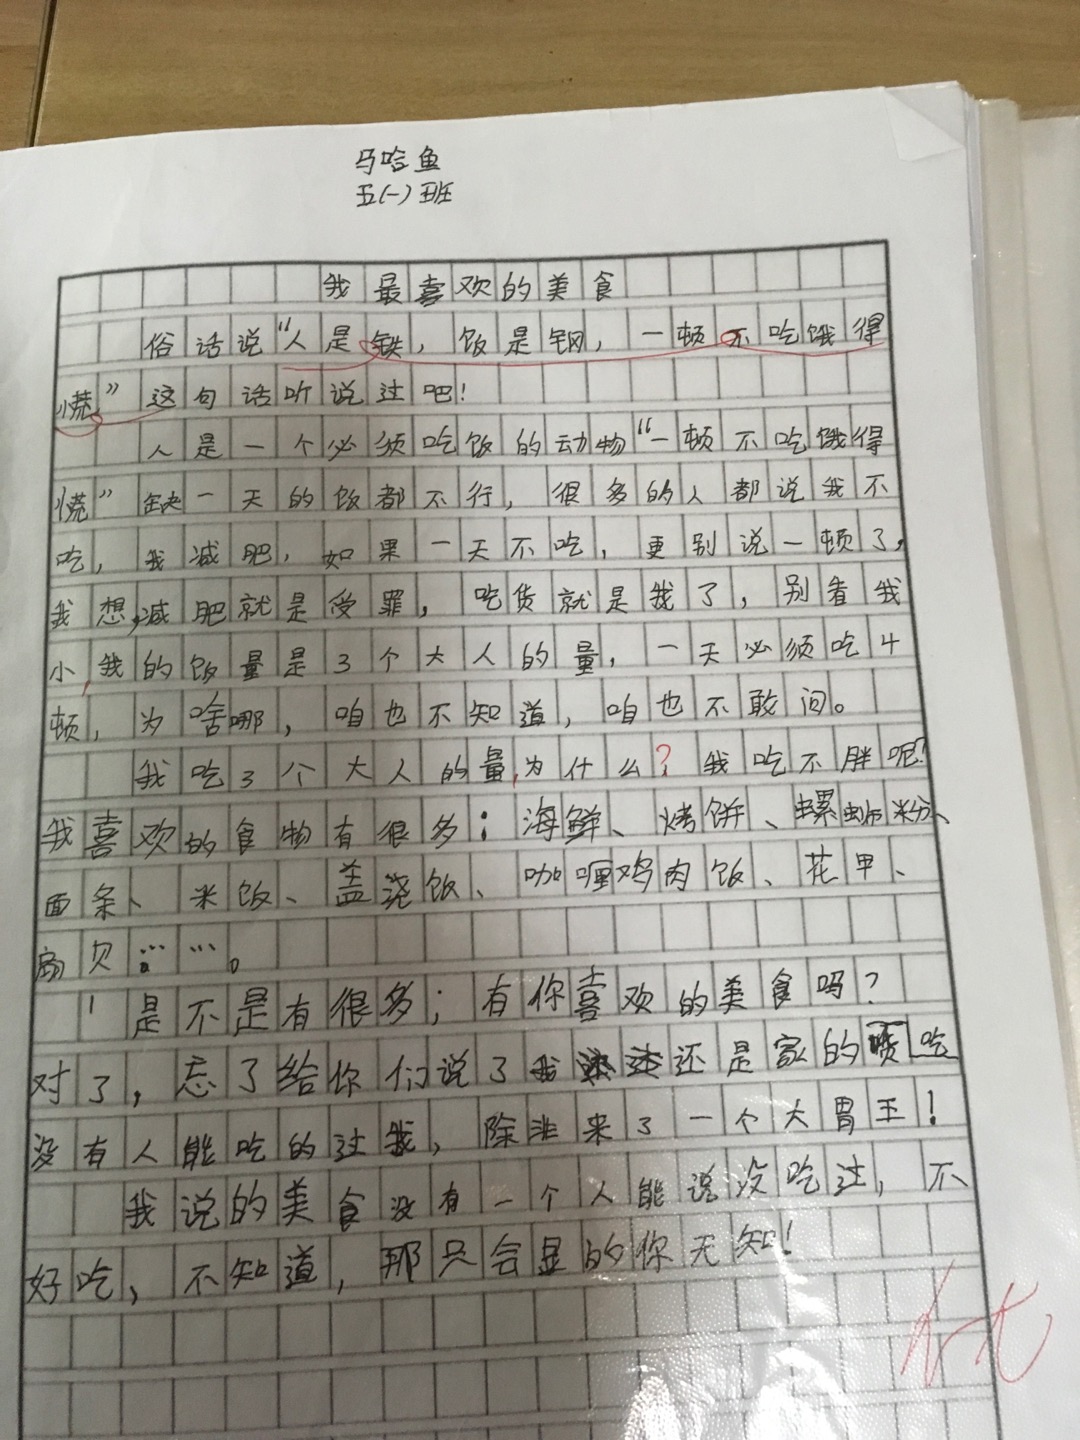 马哈鱼
五(一)班
我最喜欢的美食
俗话说“人是铁，饭是钢，一顿不吃饿得
慌。”这句话听说过吧！
人是一个必须吃饭的动物“一顿不吃饿得
慌”缺一天的饭都不行，很多的人都说我不
吃，我减肥，如果一天不吃，更别说一顿了，
我想，减肥就是受罪，吃货就是我了，别看我
小，我的饭量是3个大人的量，一天必须吃4
顿，为啥哪，咱也不知道，咱也不敢问。
我吃3个大人的量，为什么？我吃不胖呢？
我喜欢的食物有很多：海鲜、烤饼、螺蛳粉、
面条、米饭、盖浇饭、咖喱鸡肉饭、花甲、
扇贝……。
是不是有很多；有你喜欢的美食吗？
对了，忘了给你们说了我还是家的吃
没有人能吃的过我，除非来了一个大胃王！
我说的美食没有一个人能说没吃过，不
好吃，不知道，那只会显的你无知！